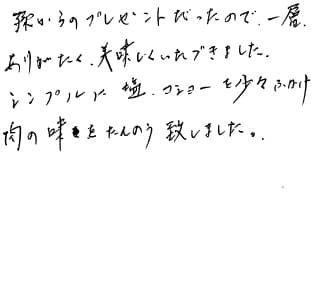 孫からのプレゼントだったので、一層、
ありがたく、美味しくいただきました。
シンプルに塩、コショーを少々ふかけ
肉の味をたんのう致しました。